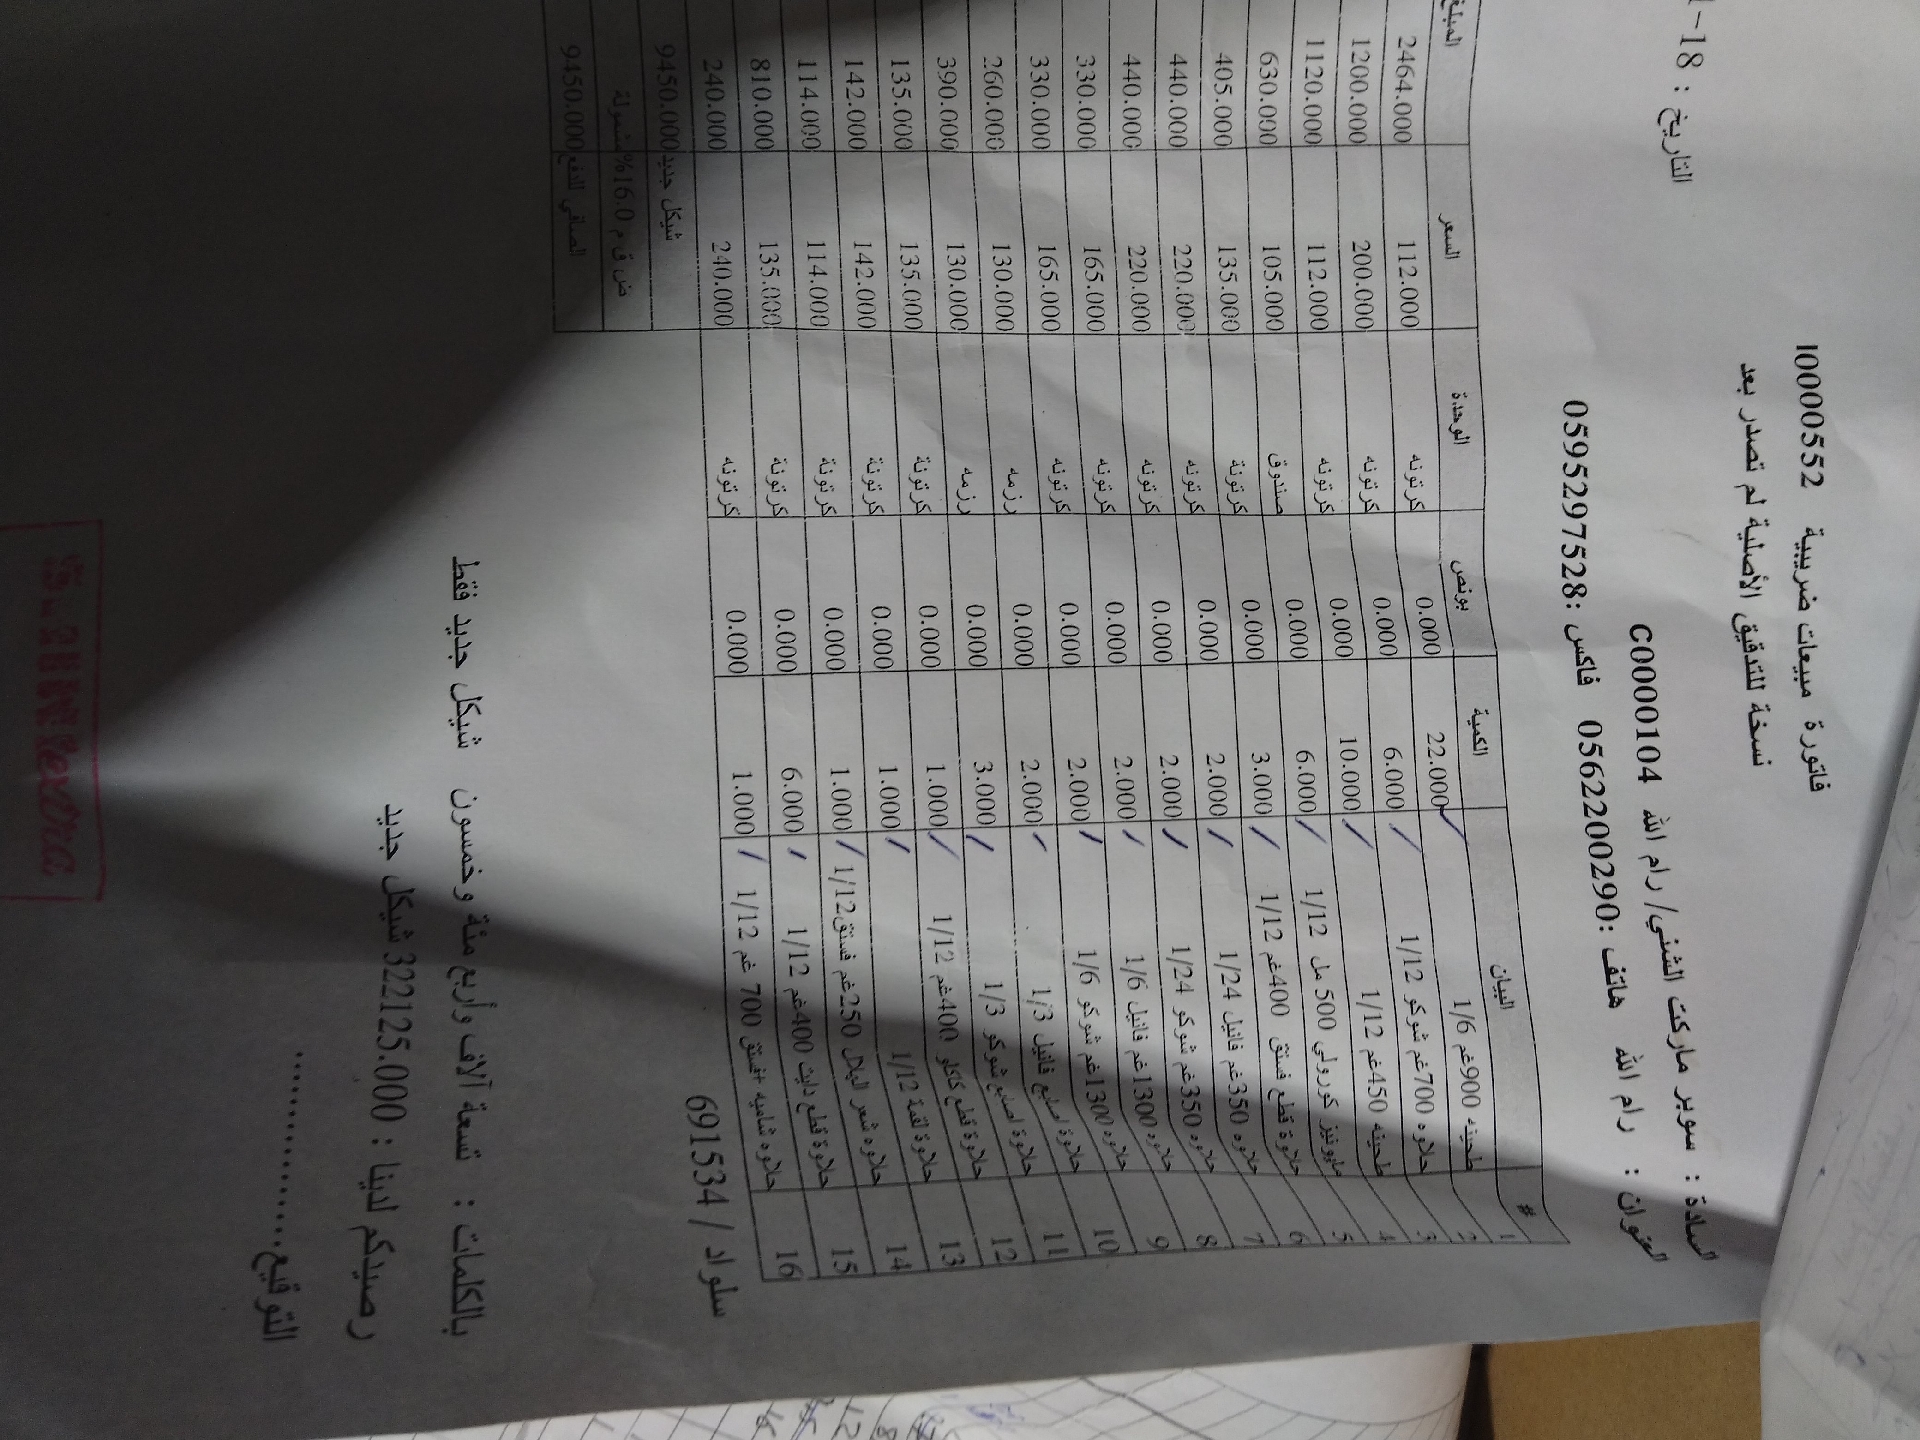 فاتورة مبيعات ضريبية I0000552
نسخة للتدقيق الأصلية لم تصدر بعد
التاريخ : 18-
السادة : سوبر ماركت الشني/ رام الله C0000104
العنوان : رام الله هاتف :0562200290 فاكس :0595297528
# البيان الكمية بونص الوحدة السعر المبلغ
1 طحينه 900غم 1/6 22.000 0.000 كرتونه 112.000 2464.000
2 حلاوه 700غم شوكو 1/12 6.000 0.000 كرتونه 200.000 1200.000
3 طحينه 450غم 1/12 10.000 0.000 كرتونه 112.000 1120.000
4 مايونيز كورولي 500 مل 1/12 6.000 0.000 صندوق 105.000 630.000
5 حلاوة قطع فستق 400غم 1/12 3.000 0.000 كرتونة 135.000 405.000
6 حلاوه 350غم فانيل 1/24 2.000 0.000 كرتونه 220.000 440.000
7 حلاوه 350غم شوكو 1/24 2.000 0.000 كرتونه 220.000 440.000
8 حلاوه 1300غم فانيل 1/6 2.000 0.000 كرتونه 165.000 330.000
9 حلاوه 1300غم شوكو 1/6 2.000 0.000 كرتونه 165.000 330.000
10 حلاوة اصابع فانيل 1/3 2.000 0.000 رزمه 130.000 260.000
11 حلاوة اصابع شوكو 1/3 3.000 0.000 رزمه 130.000 390.000
12 حلاوة قطع كاكاو 400غم 1/12 1.000 0.000 كرتونة 135.000 135.000
13 حلاوة لقمة 1/12 1.000 0.000 كرتونة 142.000 142.000
14 حلاوه شعر البلال 250غم فستق 1/12 1.000 0.000 كرتونة 114.000 114.000
15 حلاوة قطع دايت 400غم 1/12 6.000 0.000 كرتونة 135.000 810.000
16 حلاوه شاميه +فستق 700 غم 1/12 1.000 0.000 كرتونه 240.000 240.000
شيكل جديد 9450.000
ض ق م 16.0% مشمولة
الصافي للدفع 9450.000
سلواد / 691534
بالكلمات : تسعة آلاف وأربع مئة وخمسون شيكل جديد فقط
رصيدكم لدينا : 322125.000 شيكل جديد
التوقيع................